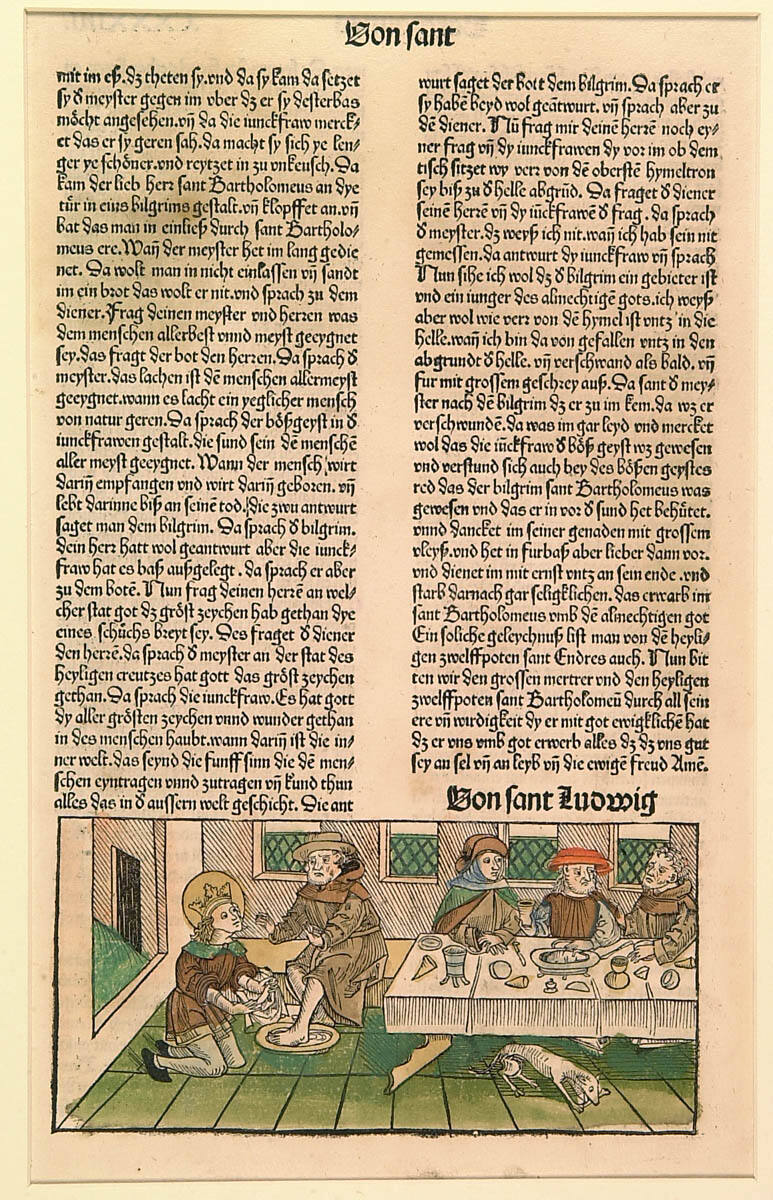 Von sant
mit im eß. dz theten sy. vnd da sy kam da setzet
sy d meyster gegen im vber dz er sy desterbas
möcht angesehen. vn̄ da die iunckfraw merck⸗
et das er sy geren sah. da macht sy sich ye len⸗
ger ye schöner. vnd reytzet in zu vnkeusch. Da
kam der lieb herr sant Bartholomeus an dye
tür in eins bilgrims gestalt. vn̄ klopffet an. vn̄
bat das man in einließ durch sant Bartholo⸗
meus ere. Wan̄ der meyster het im lang gedie
net. Da wolt man in nicht einlassen vn̄ sandt
im ein brot das wolt er nit. vnd sprach zu dem
diener. Frag deinen meyster vnd herren was
dem menschen allerbest vnnd meyst geeygnet
sey. das fragt der bot den herren. Da sprach d
meyster. das lachen ist dē menschen allermeyst
geeygnet. wann es lacht ein yeglicher mensch
von natur geren. Da sprach der bößgeyst in d
iunckfrawen gestalt. die sund sein dē menschē
aller meyst geeygnet. Wann der mensch wirt
darin̄ empfangen vnd wirt darin̄ geboren. vn̄
lebt darinne biß an seinē tod. die zwu antwurt
saget man dem bilgrim. Da sprach d bilgrim.
dein herr hatt wol geantwurt aber die iunck⸗
fraw hat es baß außgelegt. da sprach er aber
zu dem botē. Nun frag deinen herrē an wel⸗
cher stat got dz gröst zeychen hab gethan dye
eines schůchs breyt sey. Des fraget d diener
den herrē. da sprach d meyster an der stat des
heyligen creutzes hat gott das gröst zeychen
gethan. Da sprach die iunckfraw. Es hat gott
dy aller grösten zeychen vnnd wunder gethan
in des menschen haubt. wann darin̄ ist die in⸗
ner welt. das seynd die funff sinn die dē men⸗
schen eyntragen vnnd zutragen vn̄ kund thun
alles das in d aussern welt geschicht. Die ant
wurt saget der bott dem bilgrim. Da sprach er
sy habē beyd wol geātwurt. vn̄ sprach aber zu
dē diener. Nū frag mir deinē herrē noch ey⸗
ner frag vn̄ dy iunckfrawen dy vor im ob dem
tisch sitzet wy verr von dē oberstē hymeltron
sey biß zu d helle abgrūd. Da fraget d diener
seinē herrē vn̄ dy iūckfrawē d frag. da sprach
d meyster. dz weyß ich nit. wan̄ ich hab sein nit
gemessen. da antwurt dy iunckfraw vn̄ sprach
Nun sihe ich wol dz d bilgrim ein gebieter ist
vnd ein iunger des almechtigē gots. ich weyß
aber wol wie verr von dē hymel ist vntz in die
helle. wan̄ ich bin da von gefallen vntz in den
abgrundt d helle. vn̄ verschwand als bald. vn̄
fur mit grossem geschrey auß. Da sant d mey⸗
ster nach dē bilgrim dz er zu im kem. da wz er
verschwundē. da was im gar leyd vnd mercket
wol das die iūckfraw d böß geyst wz gewesen
vnd verstund sich auch bey des bößen geystes
red das der bilgrim sant Bartholomeus was
gewesen vnd das er in vor d sund het behůtet.
vnnd dancket im seiner genaden mit grossem
vleyß. vnd het in furbaß aber lieber dann vor.
vnd dienet im mit ernst vntz an sein ende. vnd
starb darnach gar seligklichen. das erwarb im
sant Bartholomeus vmb dē almechtigen got
Ein soliche geleychnuß list man von dē heyli⸗
gen zwelffpoten sant Endres auch. Nun bit
ten wir den grossen mertrer vnd den heyligen
zwelffpoten sant Bartholomeū durch all sein
ere vn̄ wirdigkeit dy er mit got ewigklichē hat
dz er vns vmb got erwerb alles dz dz vns gut
sey an sel vn̄ an leyb vn̄ die ewigē freud Amē.
Von sant Ludwig